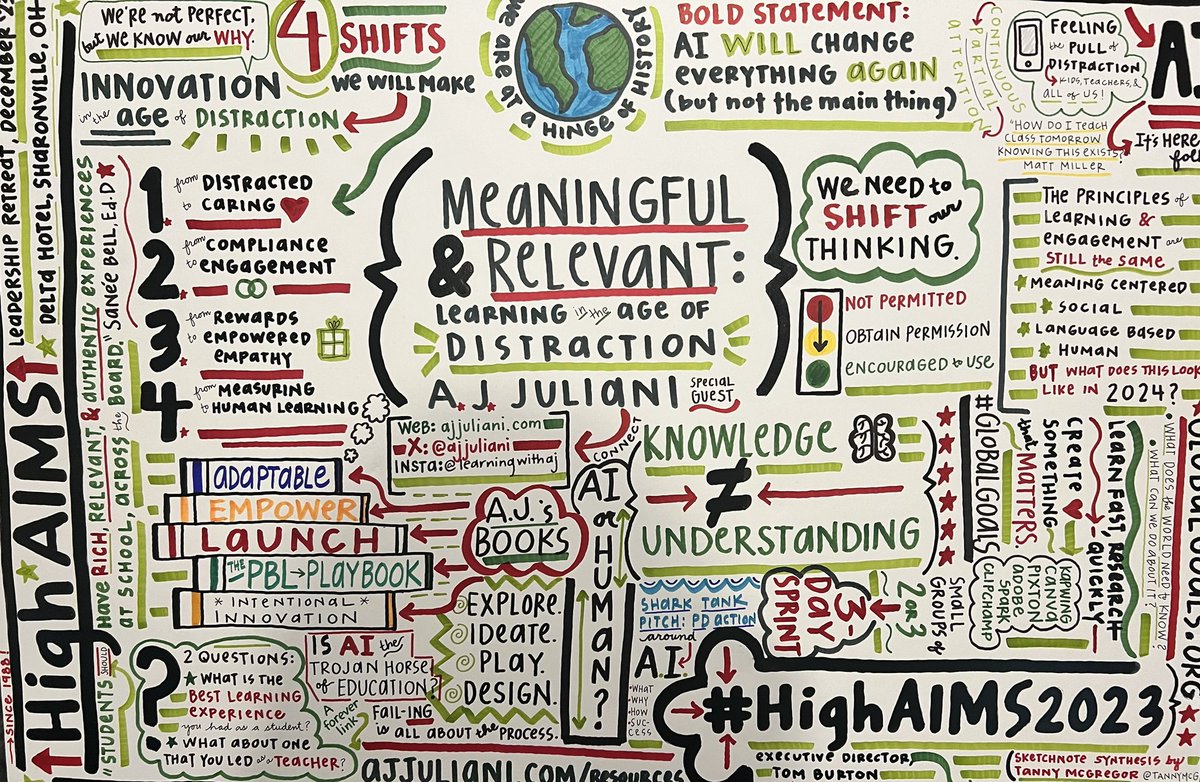 We're not perfect,
but we know our why.
4
SHIFTS
we will make
INNOVATION
in the age of DISTRACTION
we are at a hinge of history
BOLD STATEMENT:
AI WILL CHANGE
everything again
(but not the main thing)
continuous
partial
attention
FEELING
the PULL of
DISTRACTION
KIDS, TEACHERS, &
ALL of US!
"HOW DO I TEACH
CLASS TOMORROW
KNOWING THIS EXISTS?"
MATT MILLER
It's here
LEADERSHIP RETREAT, DECEMBER
DELTA HOTEL, SHARONVILLE, OH
HighAIMS
→SINCE 1988!
"STUDENTS SHOULD
HAVE RICH, RELEVANT, & AUTHENTIC EXPERIENCES
AT SCHOOL, ACROSS the BOARD." SANEÉ BELL, Ed.D
1. from DISTRACTED
to CARING
2. from COMPLIANCE
to ENGAGEMENT
3. from REWARDS
to EMPOWERED
EMPATHY
4. from MEASURING
to HUMAN LEARNING
MEANINGFUL
& RELEVANT:
LEARNING in the AGE OF
DISTRACTION
A.J. JULIANI
SPECIAL
GUEST
WE NEED to
SHIFT our
THINKING.
NOT PERMITTED
OBTAIN PERMISSION
ENCOURAGED to USE
THE PRINCIPLES of
LEARNING &
ENGAGEMENT are
STILL the SAME
MEANING CENTERED
SOCIAL
LANGUAGE BASED
HUMAN
BUT WHAT DOES THIS LOOK
LIKE IN 2024?
WEB: ajjuliani.com
X: @ajjuliani
INSTA: @learningwithaj
CONNECT
ADAPTABLE
EMPOWER
LAUNCH
THE PBL→PLAYBOOK
*INTENTIONAL*
INNOVATION
A.J.'s
BOOKS
AI or HUMAN?
KNOWLEDGE
≠
UNDERSTANDING
#GLOBALGOALS
CREATE
SOMETHING
that MATTERS
LEARN FAST, RESEARCH
QUICKLY
KAPWING
CANVA
PIXTON
ADOBE
SPARK
CLIPCHAMP
• WHAT DOES the WORLD NEED to KNOW?
• WHAT CAN WE DO ABOUT IT?
EXPLORE.
IDEATE.
PLAY.
DESIGN.
SHARK TANK
PITCH: PD ACTION
around
A.I.
•WHAT
•WHY
•HOW
•SUC-
CESS
3-
DAY
SPRINT
SMALL
GROUPS of
2 or 3
?
2 QUESTIONS:
WHAT IS the
BEST LEARNING
EXPERIENCE
you had as a student?
WHAT ABOUT ONE
THAT YOU LED as a TEACHER?
IS AI the
TROJAN HORSE
of EDUCATION?
A forever
link
FAIL-ING
is ALL ABOUT the PROCESS.
AJJULIANI.COM/resources
#HighAIMS2023
EXECUTIVE DIRECTOR,
TOM BURTON
SKETCHNOTE SYNTHESIS by
TANNY MCGREGOR